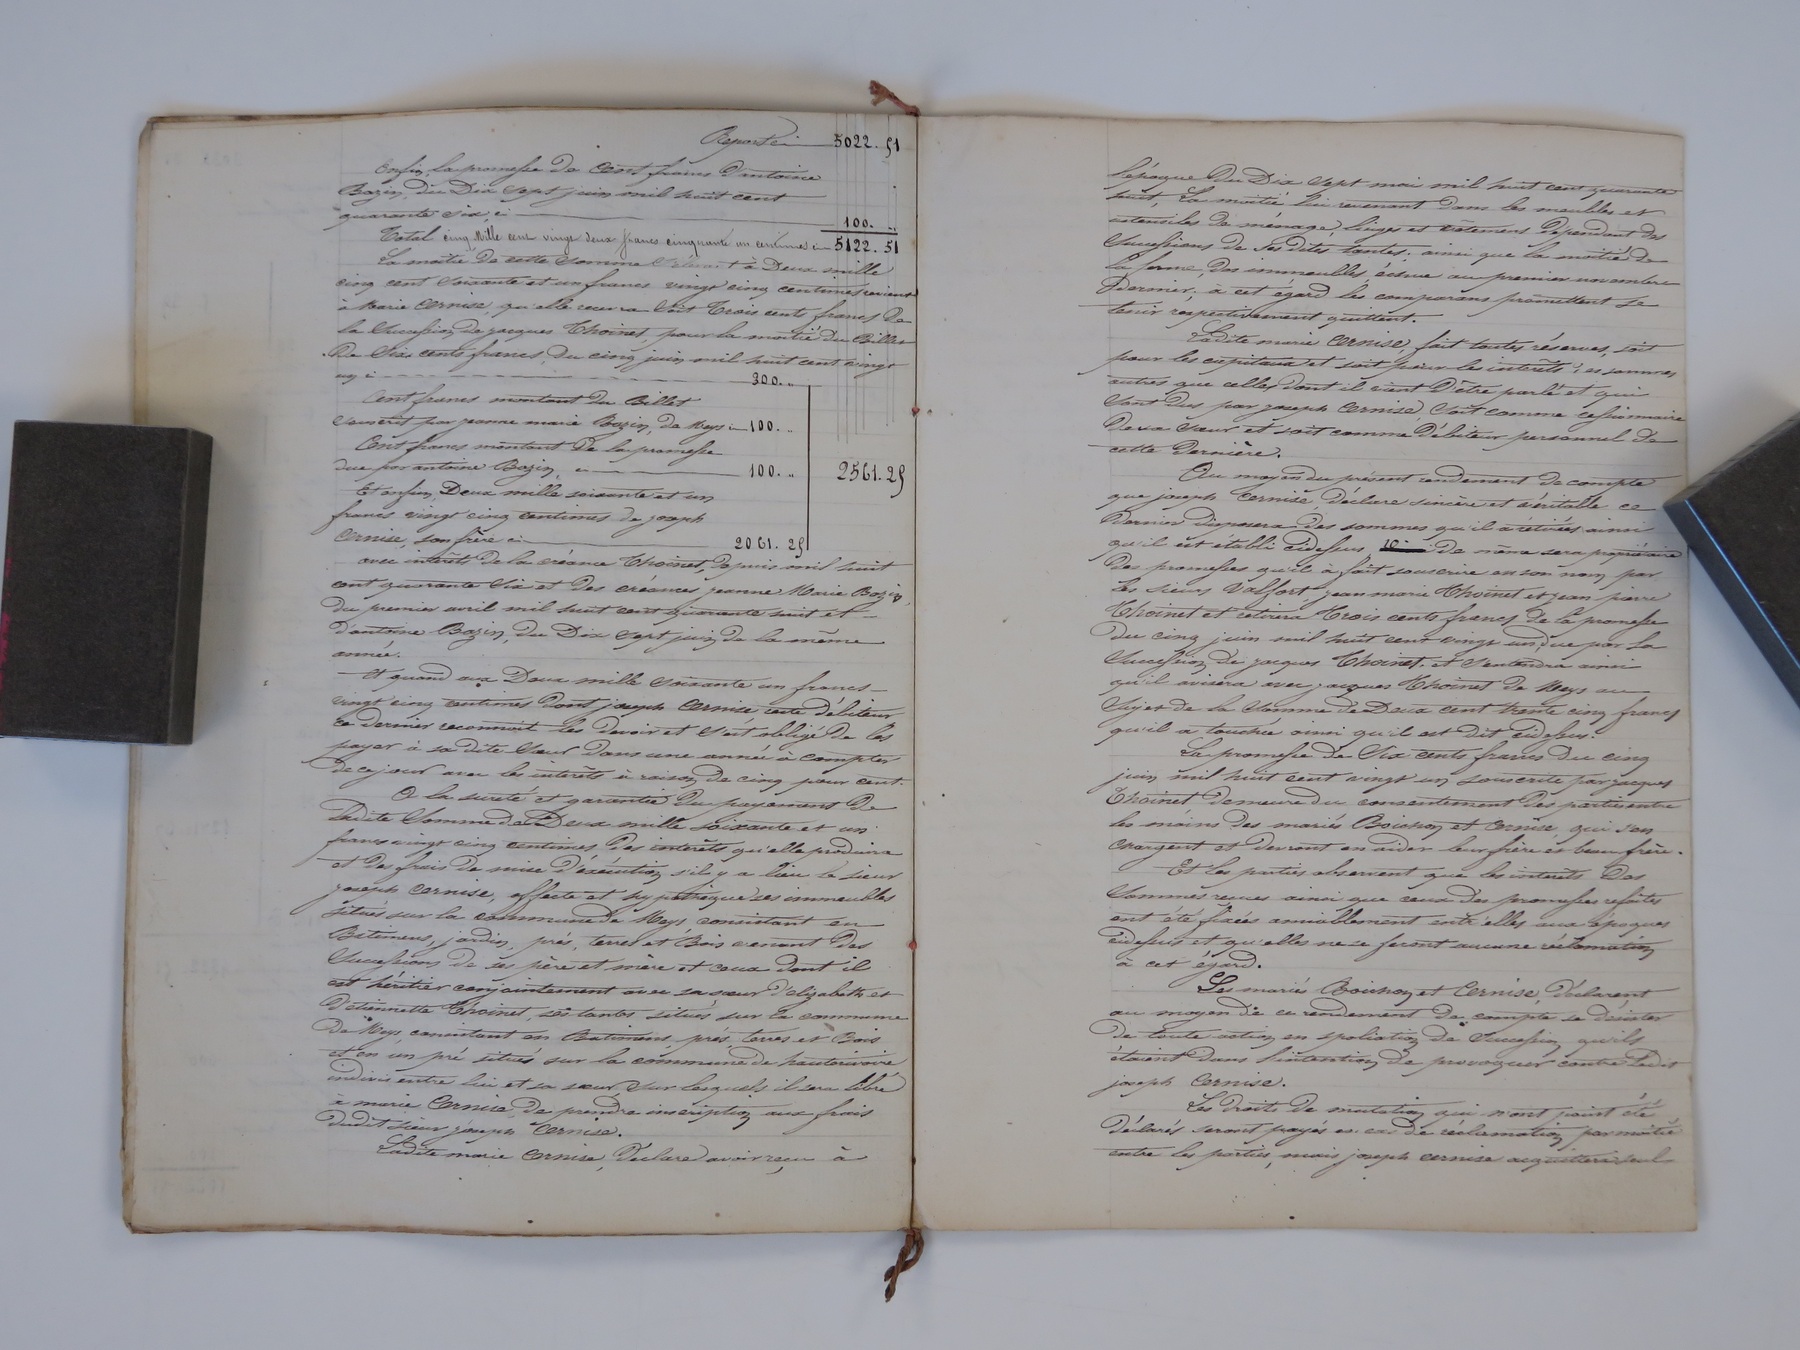 Reporté 5022. 51
Enfin, la promesse de Cent francs d'antoine
Bazin, du Dix sept juin mil huit cent
quarante six, ci 100. ..
Total cinq Mille cent vingt deux francs cinquante un centimes ci 5122. 51
La moitié de cette somme s'élevant à Deux mille
cinq cent soixante et un francs vingt cinq centimes revient
à Marie Cernise, qu'elle recevra soit Trois cents francs de
la Succession de jacques Thoinet, pour la moitié du Billet
De Six cents francs, du cinq juin mil huit cent vingt
un, ci 300. ..
Cent francs montant du Billet
souscrit par jeanne marie Bazin, de Meys ci 100. ..
Cent francs montant de la promesse
due par antoine Bazin, ci 100. .. 2561. 25
Et enfin, Deux mille soixante et un
francs vingt cinq centimes de joseph
Cernise, son frère ci 2061. 25
avec intérêts de la créance Thoinet, depuis mil huit
cent quarante six et des créances jeanne Marie Bazin,
du premier avril mil huit cent quarante huit et
d'antoine Bazin, du Dix sept juin de la même
année.
Et quand aux Deux mille soixante un francs
vingt cinq centimes dont joseph Cernise reste débiteur
ce dernier reconnoit les devoir et s'est obligé de les
payer à sa dite sœur dans une année à compter
de ce jour avec les intérêts à raison de cinq pour cent.
A la sureté et garantie du payement de
Ladite somme de Deux mille soixante et un
francs vingt cinq centimes des intérêts qu'elle produira
et des frais de mise d'éxécution, s'il y a lieu le sieur
joseph Cernise, affecte et hypothèque ses immeubles
situés sur la commune de Meys consistant en
Bâtimens, jardin, prés, terres et Bois venant des
Successions de ses père et mère et ceux dont il
est héritier conjointement avec sa sœur d'élizabeth et
D'étiennette Thoinet, ses tantes situés sur la commune
de Meys, consistant en Batimens, prés, terres et Bois
et en un pré situé sur la commune de hauterivoire
indivis entre lui et sa sœur, sur lesquels il sera libre
à marie Cernise, de prendre inscription aux frais
dudit sieur joseph Cernise.
Ladite marie Cernise, Déclare avoir reçu à
l'époque du Dix sept mai mil huit cent quarante
huit, La moitié lui revenant dans les meubles et
ustensiles de ménage, linges et vêtemens dépendant des
Successions de ses dites tantes; ainsi que la moitié de
la ferme des immeubles, échue au premier novembre
Dernier, à cet égard les comparans promettent se
tenir respectivement quittent.
Ladite marie Cernise, fait toutes réserves, soit
pour les capitaux et soit pour les intérêts; es sommes
autres que celles dont il vient d'être parlé et qui
sont dus par joseph Cernise, soit comme cessionnaire
De sa sœur et soit comme débiteur personnel de
cette Dernière.
Au moyen du présent rendement de compte
que joseph Cernise, déclare sincère et véritable ce
Dernier disposera des sommes qu'il a retirées ainsi
qu'il est établi cidessus, de même sera propriétaire
Des promesses qu'il a fait souscrire en son nom par
Les sieurs Valfort, jean marie Thoinet et jean pierre
Thoinet et retirera Trois cents francs de la promesse
du cinq juin mil huit cent vingt un, due par La
Succession de jacques Thoinet, et s'entendra ainsi
qu'il avisera avec jacques Thoinet de Meys au
sujet de la somme de Deux cent trente cinq francs
qu'il a touchée ainsi qu'il est dit cidessus.
La promesse de Six cents francs du cinq
juin mil huit cent vingt un souscrite par jacques
Thoinet demeure du consentement des parties entre
les mains des mariés Boichon et Cernise, qui s'en
chargent et devront en aider leur frère et beau frère.
Et les parties observent que les intérêts des
sommes reçues ainsi que ceux des promesses refaites
ont été fixées amiablement entr'elles aux époques
cidessus et qu'elles ne se feront aucune réclamation
à cet égard.
Les mariés Boichon et Cernise, déclarent
au moyen de ce rendement de compte se désister
de toute action en spoliation de Succession qu'ils
étaient dans l'intention de provoquer contre Ledit
joseph Cernise.
Les droits de mutation qui n'ont point été
déclarés seront payés en cas de réclamation par moitié
entre les parties, mais joseph Cernise acquittera seul